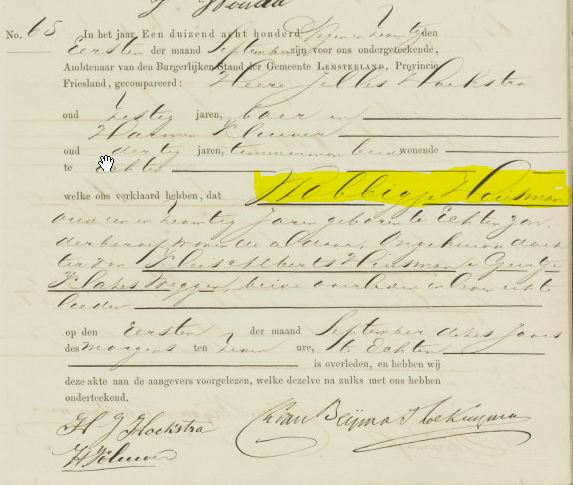 No. 65 In het jaar Een duizend acht honderd den
Eersten der maand September zijn voor ons ondergeteekende,
Ambtenaar van den Burgerlijken Stand der Gemeente LEMSTERLAND, Provincie
Friesland, gecompareerd: Heere Jelles Hoekstra
oud zestig jaren, boer en
Harmen
oud dertig jaren, timmerman beiden wonende
te Echten
welke ons verklaard hebben, dat Wobbigje Huisman
oud een en twintig Jaren geboren te Echten zon
der beroep, wonende aldaar, Ongehuwd doch
ter van Huisman en Geertje
Klases beiden overleden in leven echte
lieden
op den Eersten der maand September dezes Jaars
des morgens ten zeven ure, te Echten
is overleden, en hebben wij
deze akte aan de aangevers voorgelezen, welke dezelve na zulks met ons hebben
onderteekend.
H J Hoekstra
van Beijma